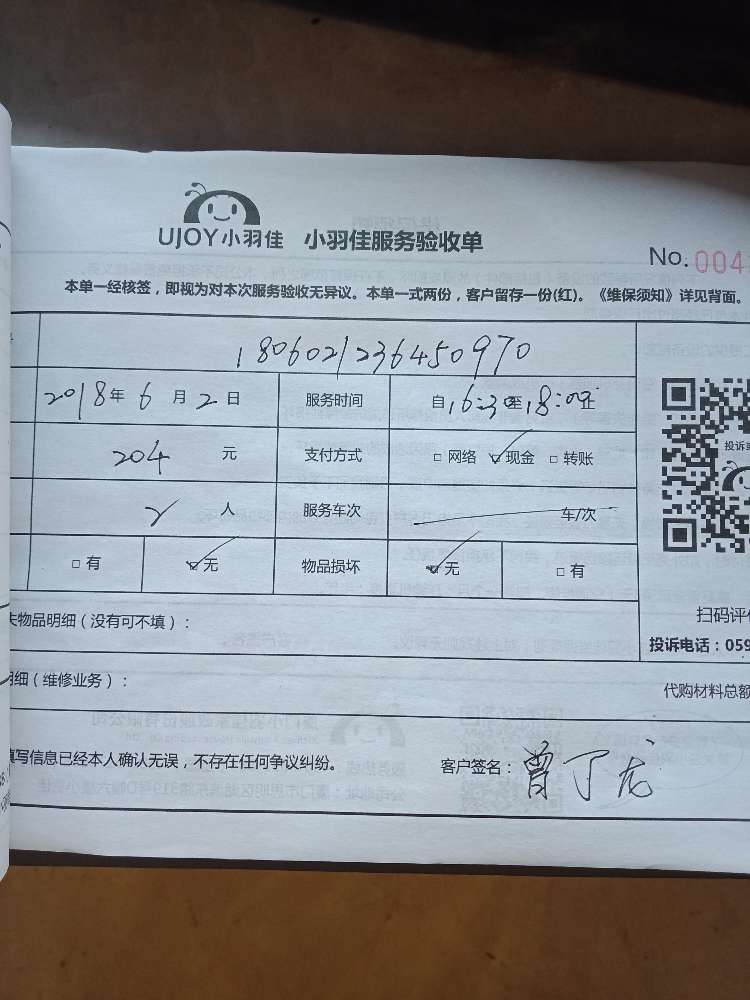 UJOY小羽佳 小羽佳服务验收单
No. 004
本单一经核签，即视为对本次服务验收无异议。本单一式两份，客户留存一份(红)。《维保须知》详见背面。
1806021236450970
2018年 6月 2日 服务时间 自16:30至18:00止
204 元 支付方式 □网络 ☑现金 □转账
2 人 服务车次 车/次
□有 ☑无 物品损坏 ☑无 □有
失物品明细（没有可不填）：
扫码评价
投诉电话：059
明细（维修业务）：
代购材料总额
填写信息已经本人确认无误，不存在任何争议纠纷。 客户签名：曾丁龙